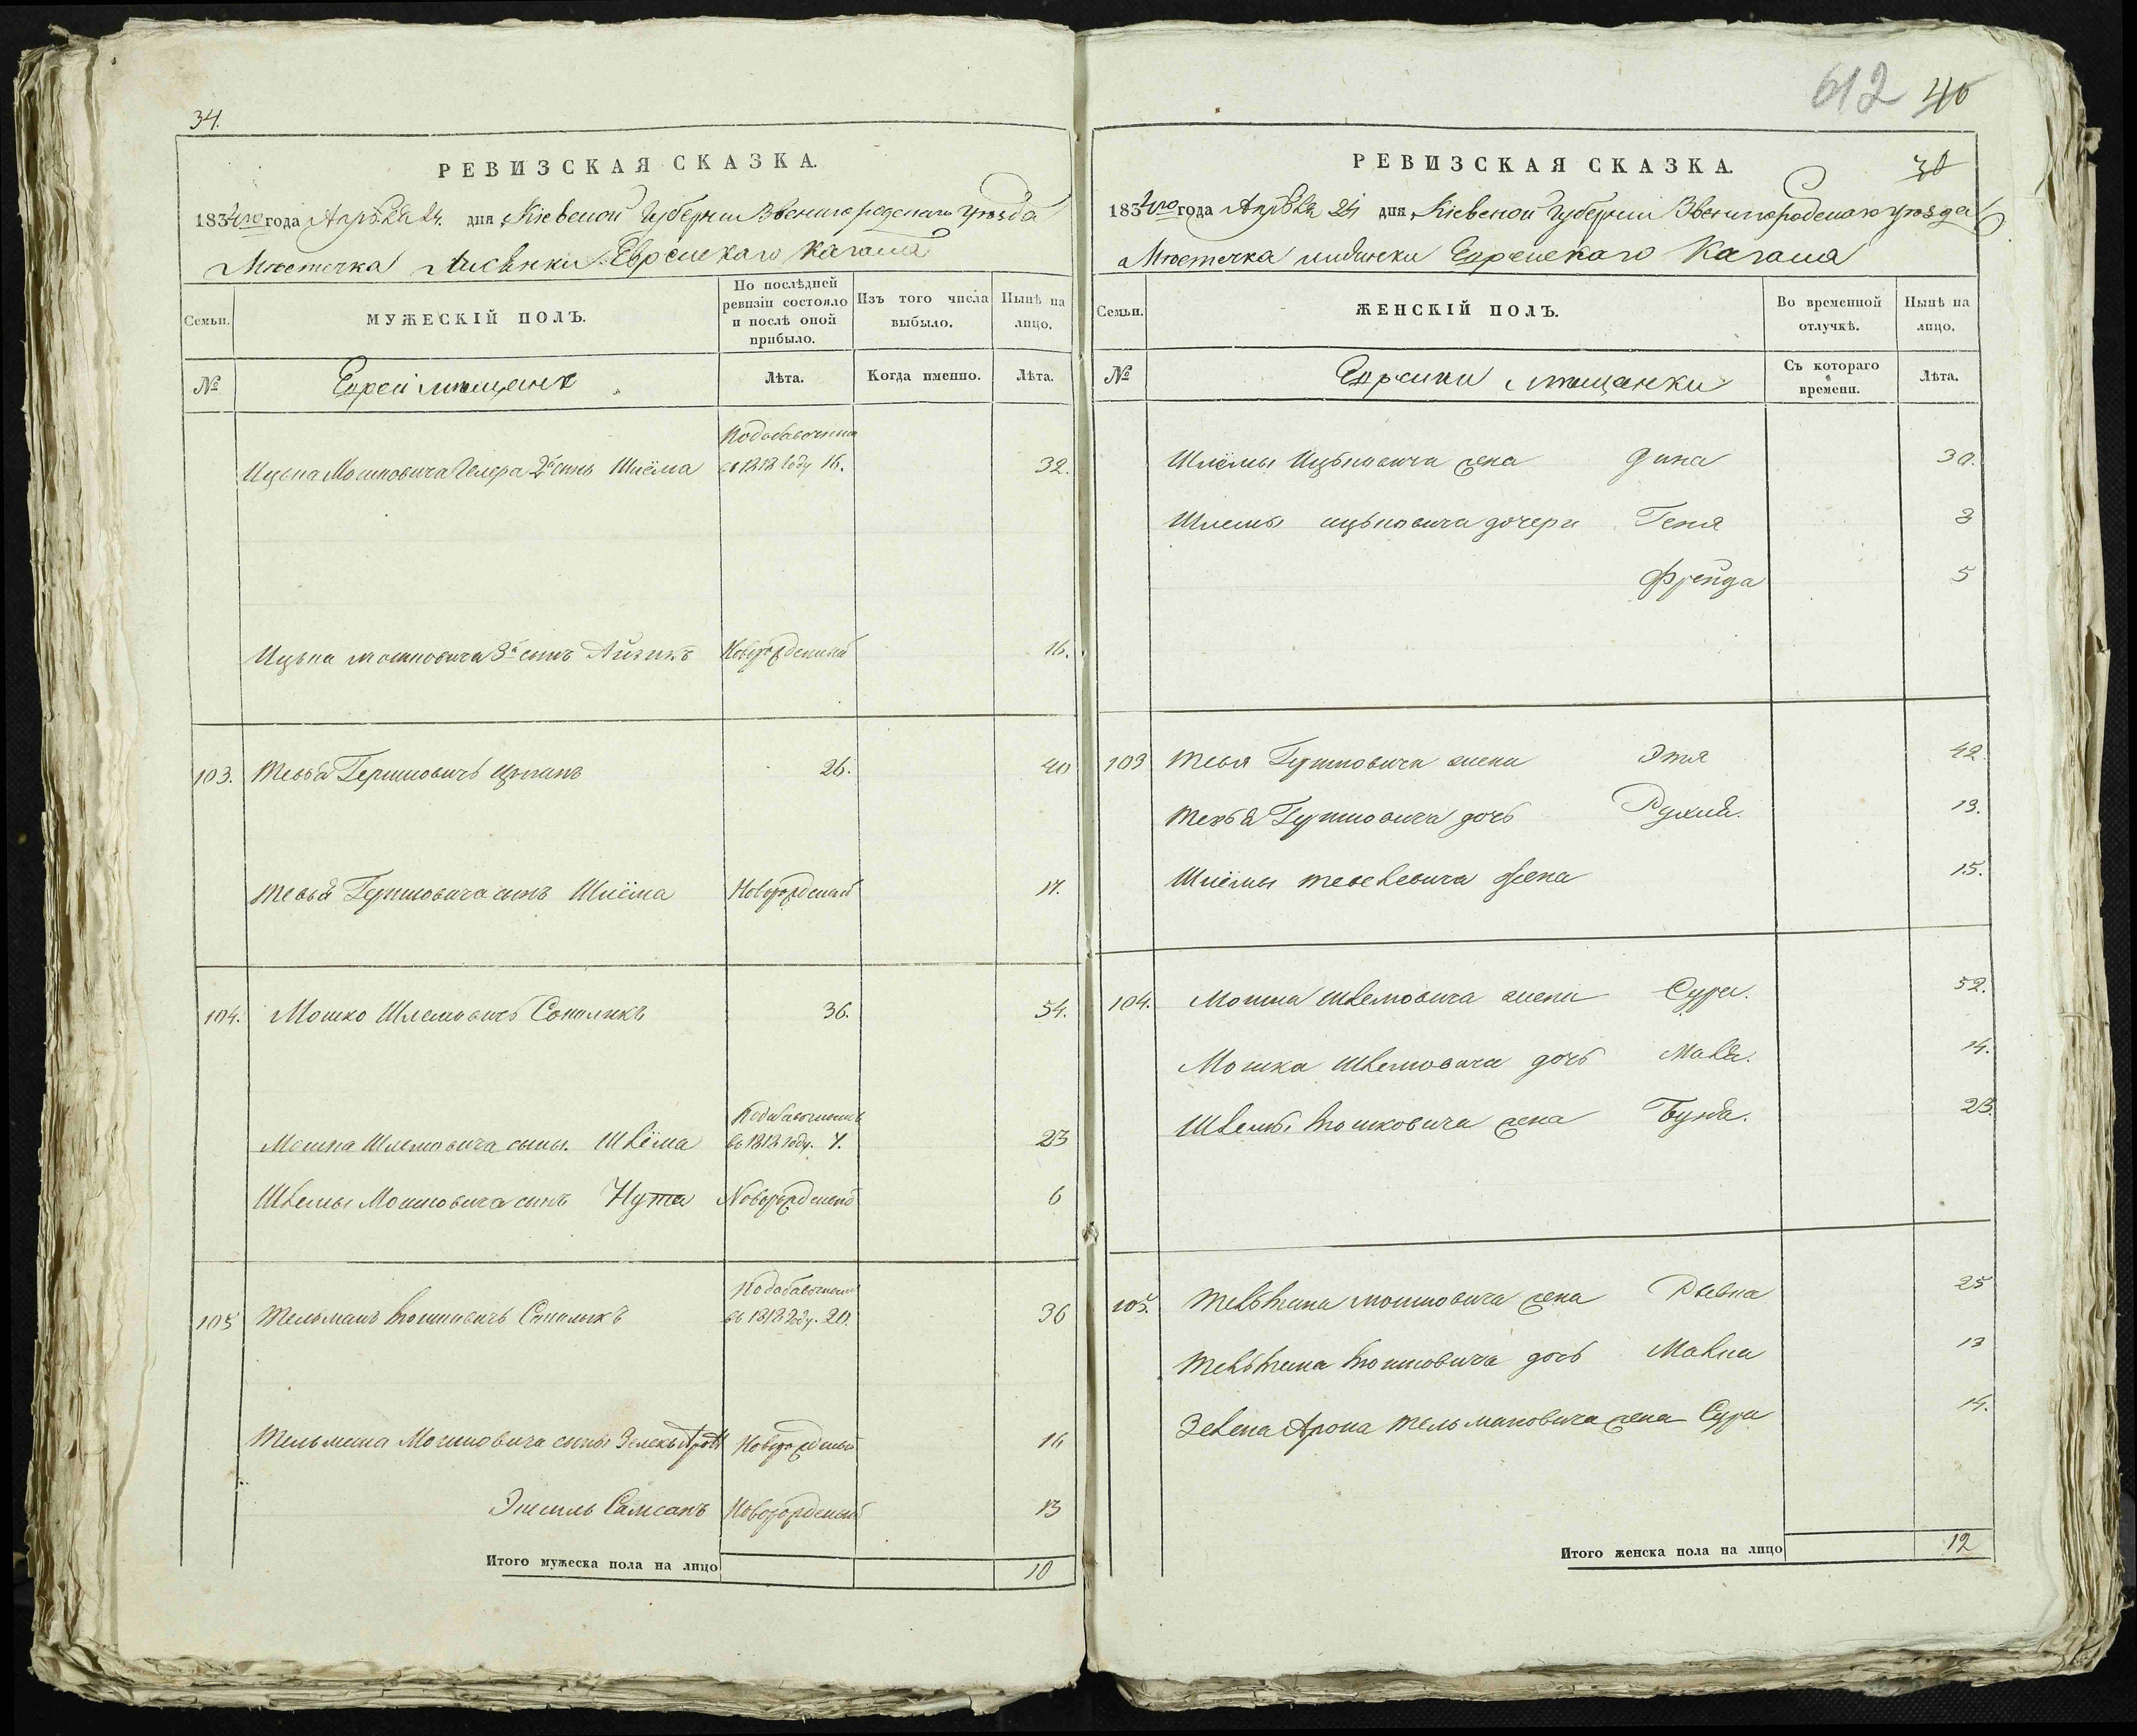 34.
РЕВИЗСКАЯ СКАЗКА.
1834го года Апрѣля 24. дня Кіевской Губерніи Звенигородскаго уѣзда
Мѣстечка Лисянки Еврейскаго Кагала
Семьи.
МУЖЕСКІЙ ПОЛЪ.
По послѣдней ревизіи состояло и послѣ оной прибыло.
Изъ того числа выбыло.
Нынѣ на лицо.
№
Евреи мѣщане
Лѣта.
Когда именно.
Лѣта.
Ицька Мошковича 2й сынъ Шлёма въ 1818 году 16. 32.
Ицька Мошковича 3й сынъ Айзикъ Новорожденный 16.
103. Тевья Гершковичъ 26. 40
Тевья Гершковича сынъ Шлёма Новорожденный 17.
104. Мошко Шлемовичъ 36. 54.
Мошка Шлемовича сыны. Шлёма въ 1818 году. 7. 23
Шлемы Мошковича сынъ Нута Новорожденный 6
105 Тельманъ Мошковичъ въ 1818 году. 20. 36
Тельмана Мошковича сыны Новорожденный 16
Самсонъ Новорожденный 13
Итого мужеска пола на лицо
10
612 40
30
РЕВИЗСКАЯ СКАЗКА.
1834го года Апрѣля 24 дня Кіевской Губерніи Звенигородскаго уѣзда
Мѣстечка Лисянки Еврейскаго Кагала
Семьи.
ЖЕНСКІЙ ПОЛЪ.
Во временной отлучкѣ.
Нынѣ на лицо.
№
Еврейки мѣщанки
Съ котораго времени.
Лѣта.
Шлёмы Ицьковича жена Дина 30.
Шлемы Ицьковича дочери Геня 8
Фрейда 5
103 Тевья Гершковича жена Этя 42
Тевья Гершковича дочь Рухля. 13.
Шлёмы Тевелевича жена 15.
104. Мошка Шлемовича жена Сура. 52.
Мошка Шлемовича дочь Маля. 14.
Шлемы Мошковича жена Буня. 23.
105. Тельмана Мошковича жена Ривка 25
Тельмана Мошковича дочь Малка 13
Зелека Арона Тельмановича жена Сура 14.
Итого женска пола на лицо
12